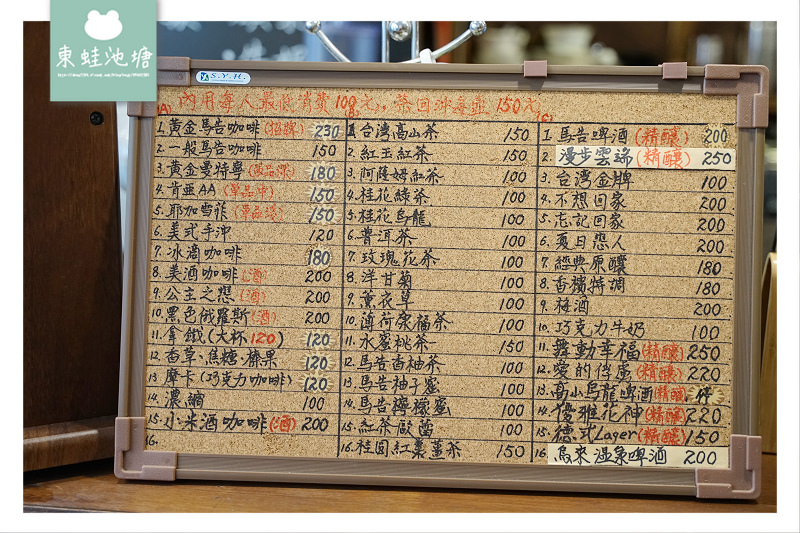 東蛙池塘
S.Y.H.
內用每人最低消費100元，茶回沖每壺150元
(A)
1.黃金馬告咖啡(招牌) 230
2.一般馬告咖啡 150
3.黃金曼特寧 180
4.肯亞AA(單品中) 150
5.耶加雪菲 150
6.美式手沖 120
7.冰滴咖啡 180
8.美酒咖啡(酒) 200
9.公主之戀(酒) 200
10.黑色俄羅斯(酒) 200
11.拿鐵(大杯120) 120
12.香草、焦糖、榛果 120
13.摩卡(巧克力咖啡) 120
14.濃縮 100
15.小米酒咖啡(酒) 200
16.
1.台灣高山茶 150
2.紅玉紅茶 150
3.阿薩姆紅茶 100
4.桂花綠茶 100
5.桂花烏龍 100
6.普洱茶 100
7.玫瑰花茶 100
8.洋甘菊 100
9.薰衣草 100
10.薄荷泉福茶 100
11.水蜜桃茶 150
12.馬告香柚茶 100
13.馬告柚子蜜 100
14.馬告檸檬蜜 100
15.紅茶歐蕾 100
16.桂圓紅棗薑茶 150
(C)
1.馬告啤酒(精釀) 200
2.漫步雲端(精釀) 250
3.台灣金牌 100
4.不想回家 200
5.忘記回家 200
6.夏日戀人 200
7.經典原釀 180
8.香檳特調 180
9.梅酒 200
10.巧克力牛奶 100
11.舞動幸福(精釀) 250
12.愛的俘虜(精釀) 220
13.高山烏龍啤酒(精釀) 停
14.優雅花神(精釀) 220
15.德式Lager(精釀) 150
16.烏來溫泉啤酒 200